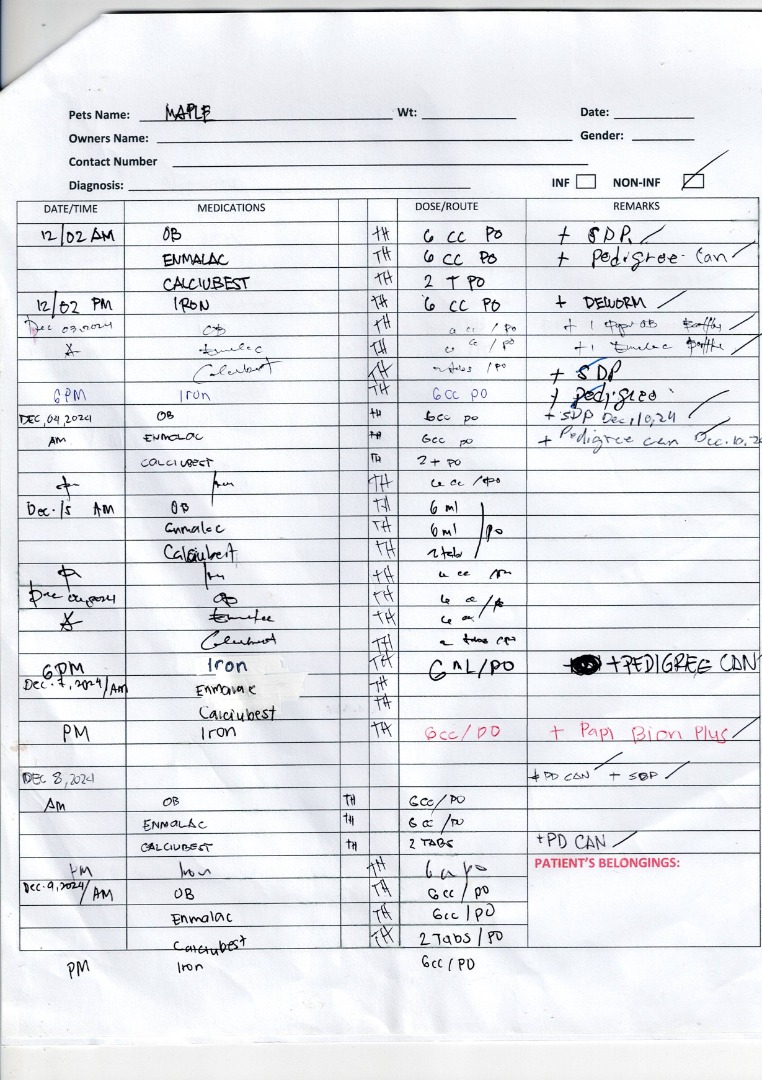 Pets Name: MAPLE Wt: Date:
Owners Name: Gender:
Contact Number
Diagnosis: INF NON-INF
DATE/TIME MEDICATIONS DOSE/ROUTE REMARKS
12/02 AM OB TH 6 cc PO + SDP
ENMALAC TH 6 cc PO + Pedigree Can
CALCIUBEST TH 2 T PO
12/02 PM IRON TH 6 cc PO + DEWORM
Dec 03, 2024 OB TH cc / PO + 1 OB
TH cc / PO + 1
TH tabs / PO + SDP
6PM Iron TH 6cc PO + pedigree
DEC, 04, 2024 OB TH 6cc PO + SDP Dec, 10, 24
AM ENMALAC TH 6cc PO + Pedigree can Dec. 10, 2
CALCIUBEST TH 2 + PO
TH cc / PO
Dec. /5 AM OB TH 6 ml
Enmalac TH 6 ml / PO
Calciubest TH 2 tab
TH cc
OB TH
TH
TH
6PM Iron TH 6 mL/PO + PEDIGREE CAN
Dec. 7, 2024/Am Enmalac TH
Calciubest TH
PM Iron TH 6cc/PO + Papi Bion Plus
DEC 8, 2024 + PD CAN + SDP
Am OB TH 6cc/PO
ENMALAC TH 6 cc/PO
CALCIUBEST TH 2 TABS + PD CAN
PM Iron TH PATIENT'S BELONGINGS:
Dec. 9, 2024/AM OB TH 6cc / PO
Enmalac TH 6cc / PO
Calciubest TH 2 Tabs / PO
PM Iron 6cc / PO